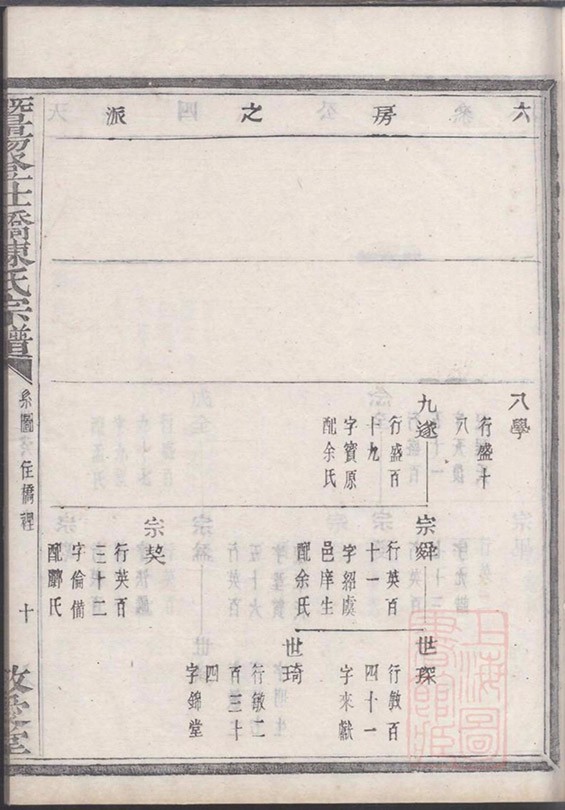 六房之派
八學
行盛十
八
九遂
行盛百
十九
字寶原
配余氏
宗舜
行英百
十一
字紹虞
邑庠生
配余氏
宗契
行英百
三十二
字倫備
配酈氏
世琛
行敏百
四十一
字來獻
世琦
行敏二
百三十
四
字錦堂
暨陽登仕橋陳氏宗譜
系圖
住橋裡
十
上海圖書館藏